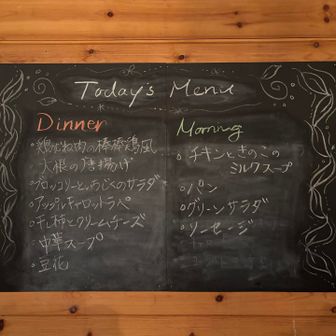 Today's Menu
Dinner
○鶏むね肉の棒棒鶏風
○大根の唐揚げ
○ブロッコリーといちじくのサラダ
○アップルキャロットラペ
○干し柿とクリームチーズ
○中華スープ
○豆花
Morning
○チキンときのこの
ミルクスープ
○パン
○グリーンサラダ
○ソーセージ